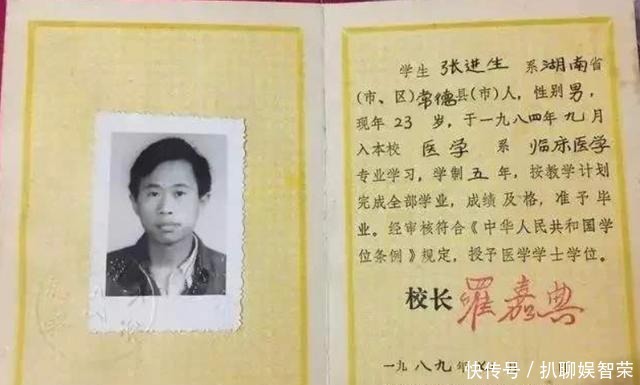 学生 张进生 系 湖南省
(市、区)常德县(市)人，性别 男，
现年 23 岁，于一九八四年九月
入本校 医学 系 临床医学
专业学习，学制 五 年，按教学计划
完成全部学业，成绩及格，准予毕
业。经审核符合《中华人民共和国学
位条例》规定，授予医学学士学位。
校长 罗嘉典
一九八九年
快传号/扒聊娱智荣